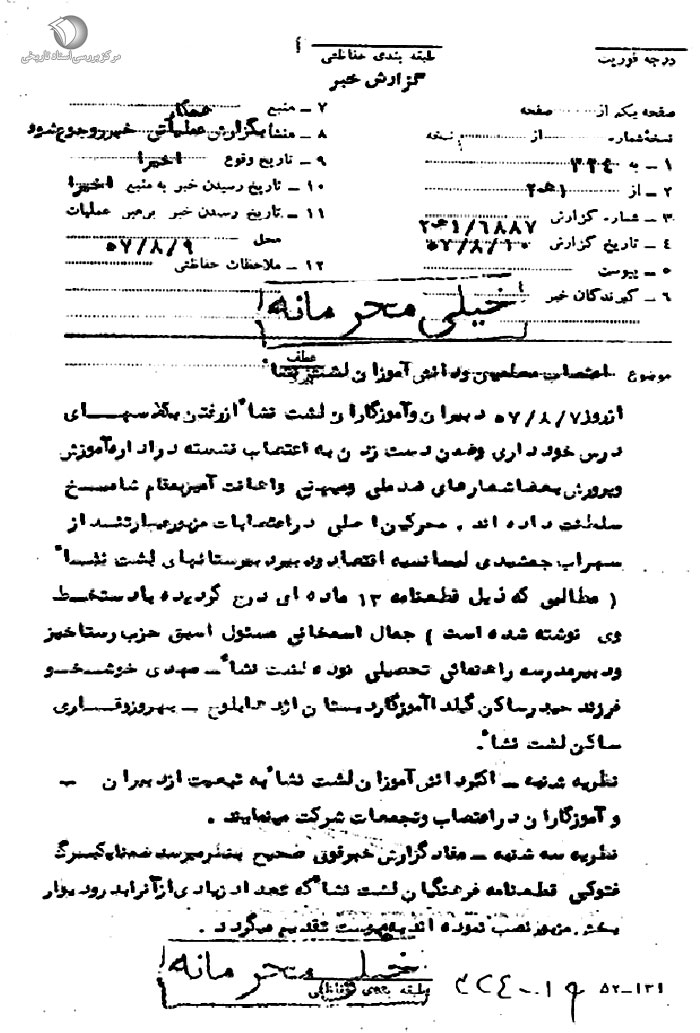 مرکز بررسی اسناد تاریخی
درجه فوریت
طبقه بندی حفاظتی
گزارش خبر
صفحه یکم از صفحه
نسخه شماره از نسخه
۱ - به ۳۳٤
۲ - از ۲ه۱
۳ - شماره گزارش ۲ه۱/٦۸۸۷
٤ - تاریخ گزارش ۵۷/۸/۱۰
۵ - پیوست
٦ - گیرندگان خبر
۷ - منبع همکار
۸ - منشا بگزارش عملیاتی خبر رجوع شود
۹ - تاریخ وقوع اخیرا
۱۰ - تاریخ رسیدن خبر به منبع اخیرا
۱۱ - تاریخ رسیدن خبر برهبر عملیات
محل ۵۷/۸/۹
۱۲ - ملاحظات حفاظتی
خیلی محرمانه
عطف
موضوع اعتصاب معلمین ودانش آموزان لشت نشاء
ازروز ۵۷/۸/۷ دبیران وآموزگاران لشت نشاء ازرفتن بکلاسهای
درس خودداری وضمن دست زدن به اعتصاب نشسته دراداره آموزش
وپرورش بعضا شعارهای ضدملی ومیهنی واهانت آمیزبمقام شامخ
سلطنت داده اند . محرکین اصلی دراعتصابات مزبورعبارتند از
سهراب جمشیدی لیسانسیه اقتصاد ودبیردبیرستانهای لشت نشاء
( مطالبی که ذیل قطعنامه ۱۳ ماده ای درج گردیده بادستخط
وی نوشته شده است ) جمال اسمخانی مسئول اسبق حزب رستاخیز
ودبیرمدرسه راهنمائی تحصیلی نوده لشت نشاء - مهدی خوشخو
فرزند حیدرساکن گیلدا آموزگاردبستان اژدهابلوچ - بهروزوقاری
ساکن لشت نشاء .
نظریه شنبه - اکثردانش آموزان لشت نشاء به تبعیت ازدبیران -
و آموزگاران دراعتصاب وتجمعات شرکت مینمایند .
نظریه سه شنبه - مفادگزارش خبرفوق صحیح بنظرمیرسد ضمنایکبرگ
فتوکپی قطعنامه فرهنگیان لشت نشاء که تعداد زیادی ازآنرابدرودیوار
بخش مزبورنصب نموده اند به پیوست تقدیم میگردد .
خیلی محرمانه
طبقه بندی حفاظتی
۵۲-۱۳۱